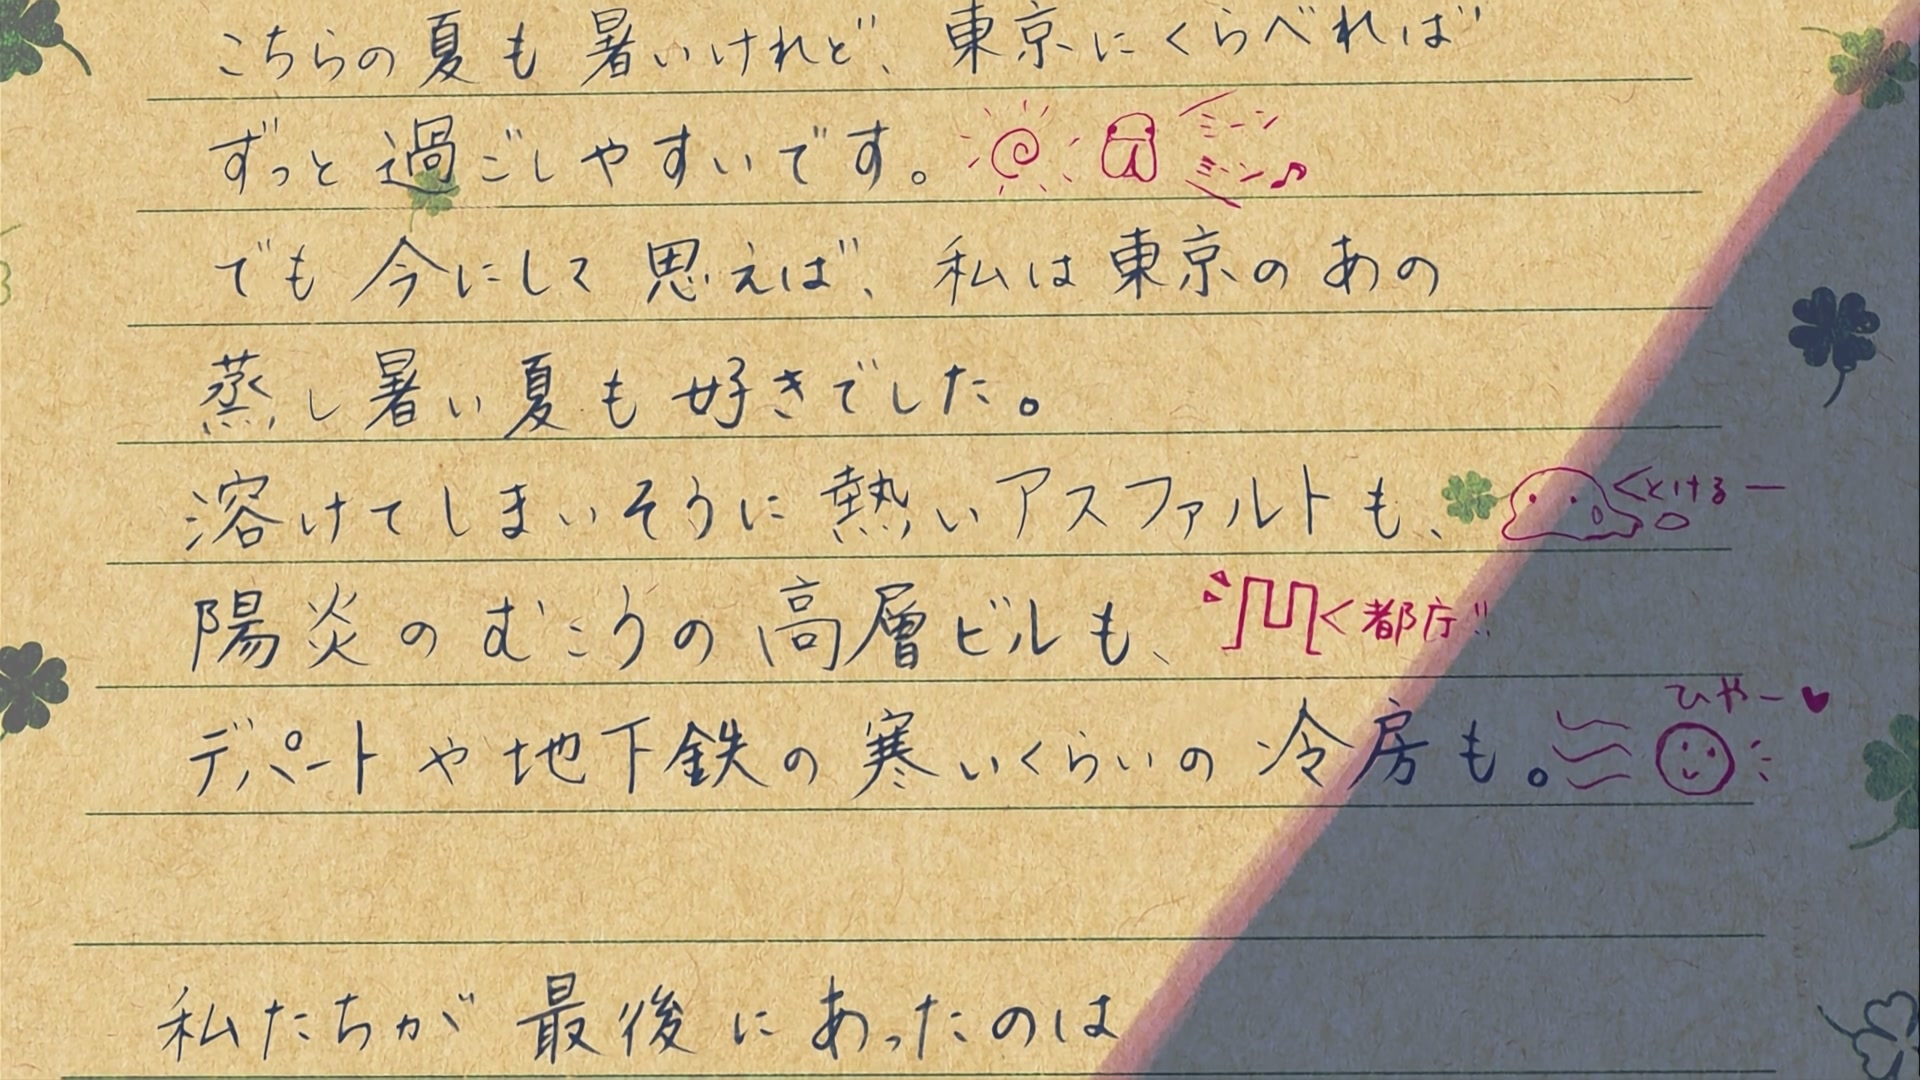 こちらの夏も暑いけれど、東京にくらべれば
ずっと過ごしやすいです。 ミーン
ミーン♪
でも今にして思えば、私は東京のあの
蒸し暑い夏も好きでした。
溶けてしまいそうに熱いアスファルトも、 とけるー
陽炎のむこうの高層ビルも、 都庁!!
ひやー♥
デパートや地下鉄の寒いくらいの冷房も。
私たちが最後にあったのは